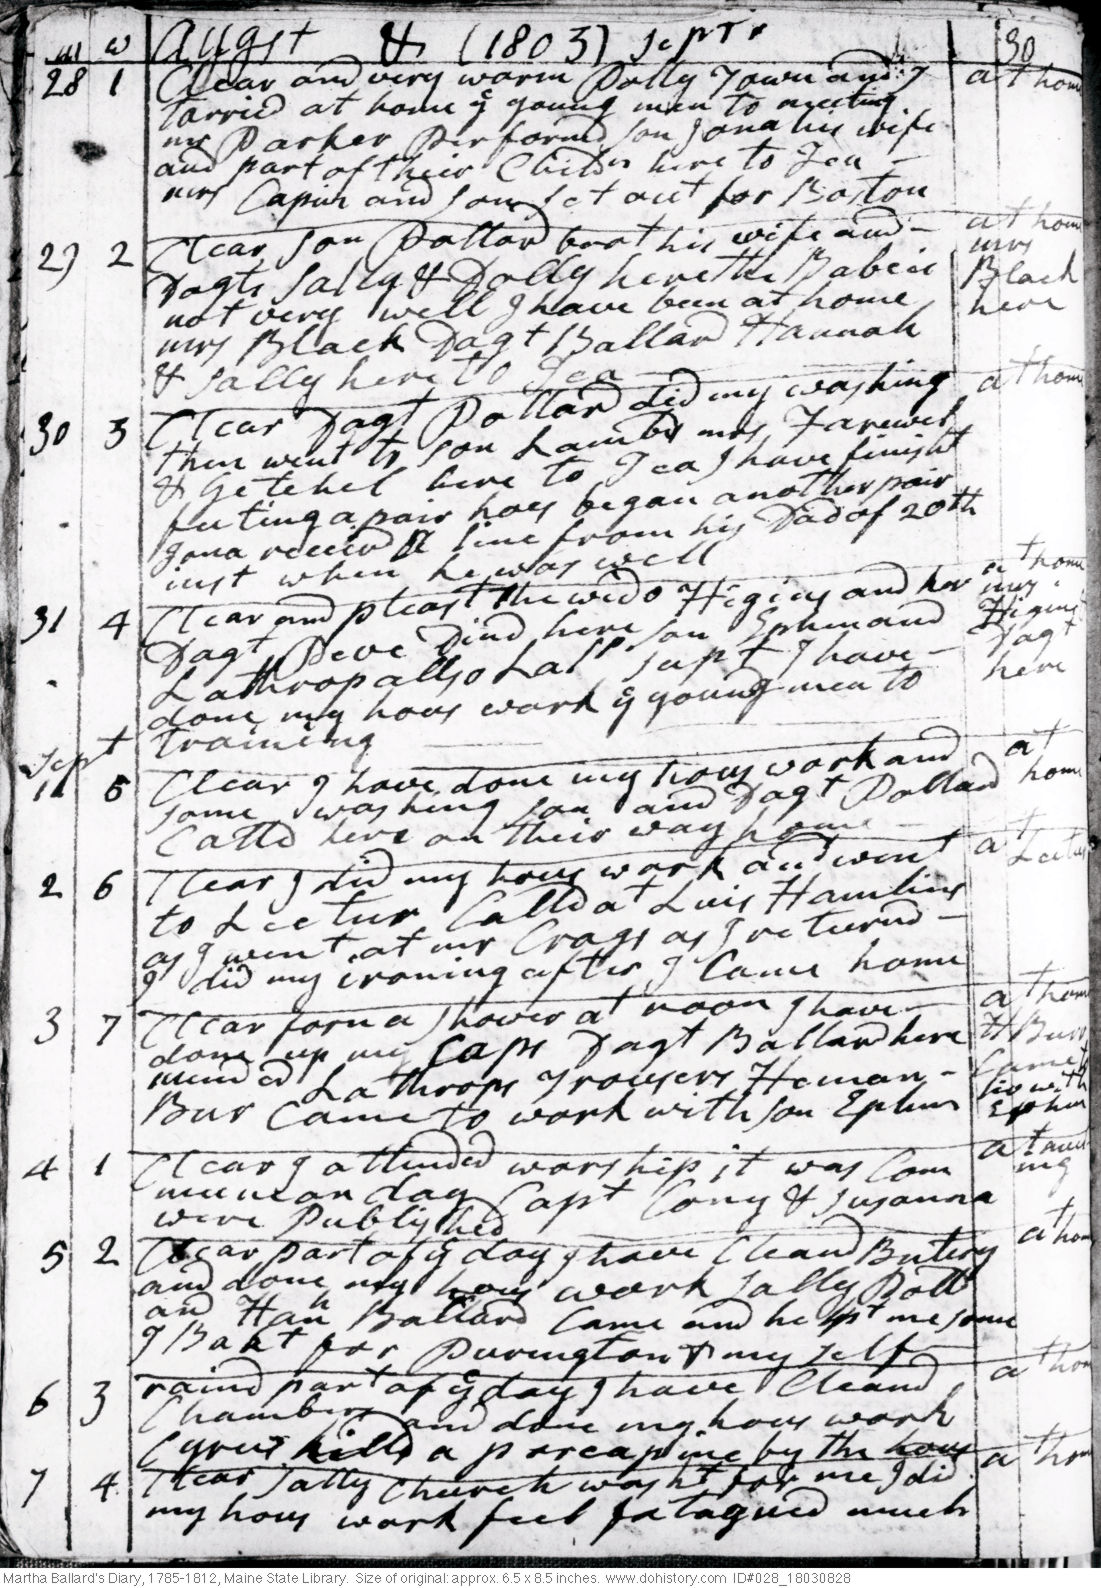 m w Augst & (1803) Septr 30
28 1 Clear and very warm Polly Town and I at home
tarried at home ye young men to meeting.
mr Parker Performd son Jona his wife
and part of their Childn here to Tea
mrs Capin and son set out for Boston
29 2 Clear son Pollard brot his wife and at home
Dagts Sally & Dolly here the Babe is mrs Black here
not very well I have been at home
mrs Black Dagt Ballard Hannah
& Sally here to Tea
30 3 Clear Dagt Pollard did my washing at home
then went to son Lambds mrs Farewel
& Getchel here to Tea I have finisht
feeting a pair hoes began another pair
Jona receivd a line from his Dad of 20th
inst when he was well
31 4 Clear and pleast the wido Higins and her at home mrs Higins
Dagt Deve Dind here son Ephm and Dagt here
Lathrop allso Lall supt I have
done my hous work ye young men to
training
Sept
1 5 Clear I have done my hous work and at home
some washing son and Dagt Pollard
Calld here on their way home
2 6 Clear I did my hous work and went at Lectur
to Lectur Calld at Luis Hamlins
as I went at mr Crags as I returnd
I did my ironing after I Came home
3 7 Clear forn a shower at noon I have at home
done up my Caps Dagt Ballard here H Burr
mended Lathrops Trowsers Heman Came to
Bur Came to work with son Ephm with Ephm
4 1 Clear I attended worship it was Com at meeting
munion day Capt Cony & Susanna
were Publishd
5 2 Clear part of ye day I have Cleand Butery at home
and done my hous work Sally Dolly
and Han Ballard Came and helpt me some
I Bakt for Purington & my self
6 3 raind part of ye day I have Cleand at home
Chambers and done my hous work
Cyrus killd a porcapine by the hous
7 4 Clear Sally Church washt for me I did at home
my hous work feel fatagued much
Martha Ballard's Diary, 1785-1812, Maine State Library. Size of original: approx. 6.5 x 8.5 inches. www.dohistory.com ID#028_18030828